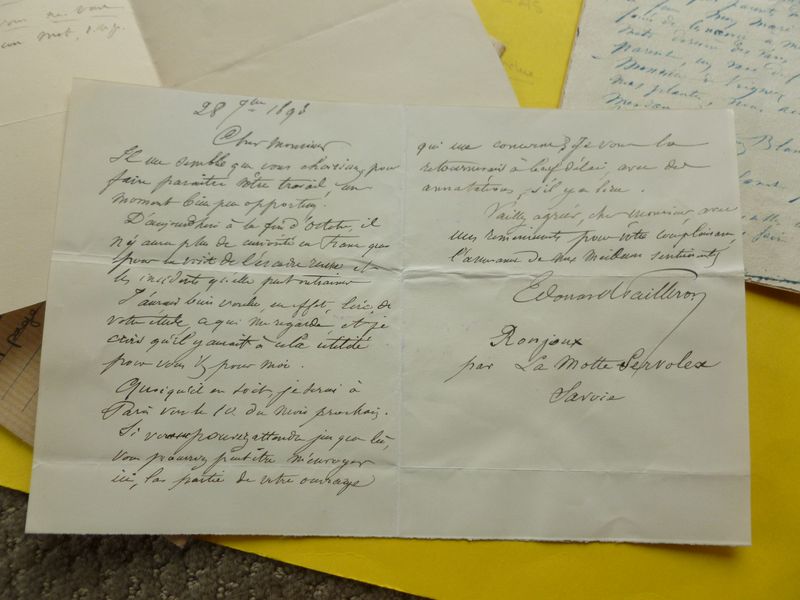 28 7bre 1893
Cher Monsieur
Il me semble que vous choisissez, pour
faire paraître votre travail, un
moment bien peu opportun.
D'aujourd'hui à la fin d'Octobre, il
n'y aura plus de curiosité en France que
pour la visite de l'escadre russe et
les incidents qu'elle peut entraîner
J'aurais bien voulu, en effet, lire de
votre étude, ce qui me regarde, et je
crois qu'il y aurait à cela utilité
pour vous & pour moi.
Quoiqu'il en soit, je serai à
Paris vers le 10 du mois prochain.
Si vous pouvez attendre jusque là,
vous pourrez peut être m'envoyer
ici, la partie de votre ouvrage
qui me concerne, je vous la
retournerais à bref délai, avec des
annotations, s'il y a lieu.
Veuillez agréer, cher Monsieur, avec
mes remerciments pour votre complaisance,
l'assurance de mes meilleurs sentiments
Edouard Pailleron
Ronjoux
par La Motte Servolex
Savoie